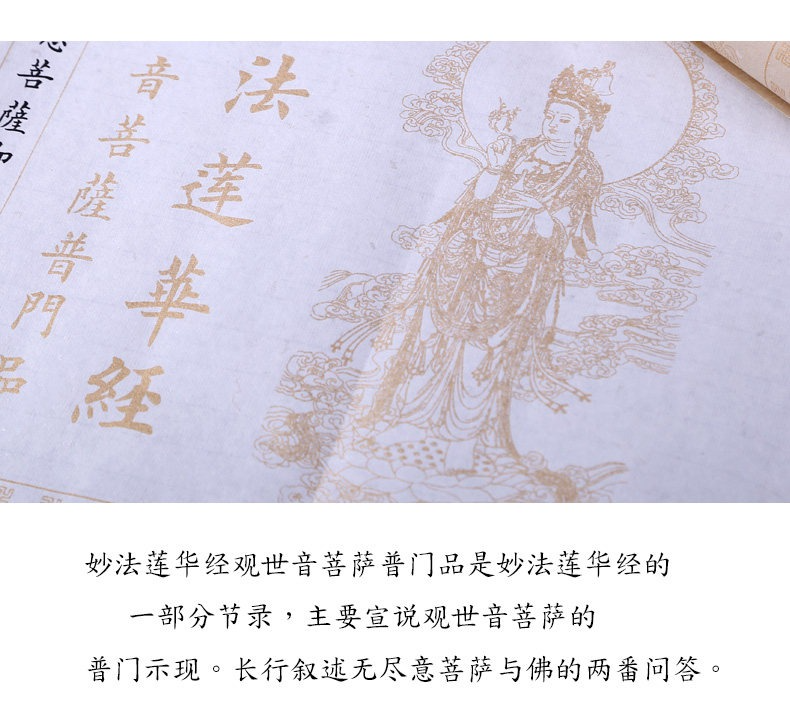 法莲華經
音菩薩普門品
菩薩
妙法莲华经观世音菩萨普门品是妙法莲华经的
一部分节录，主要宣说观世音菩萨的
普门示现。长行叙述无尽意菩萨与佛的两番问答。